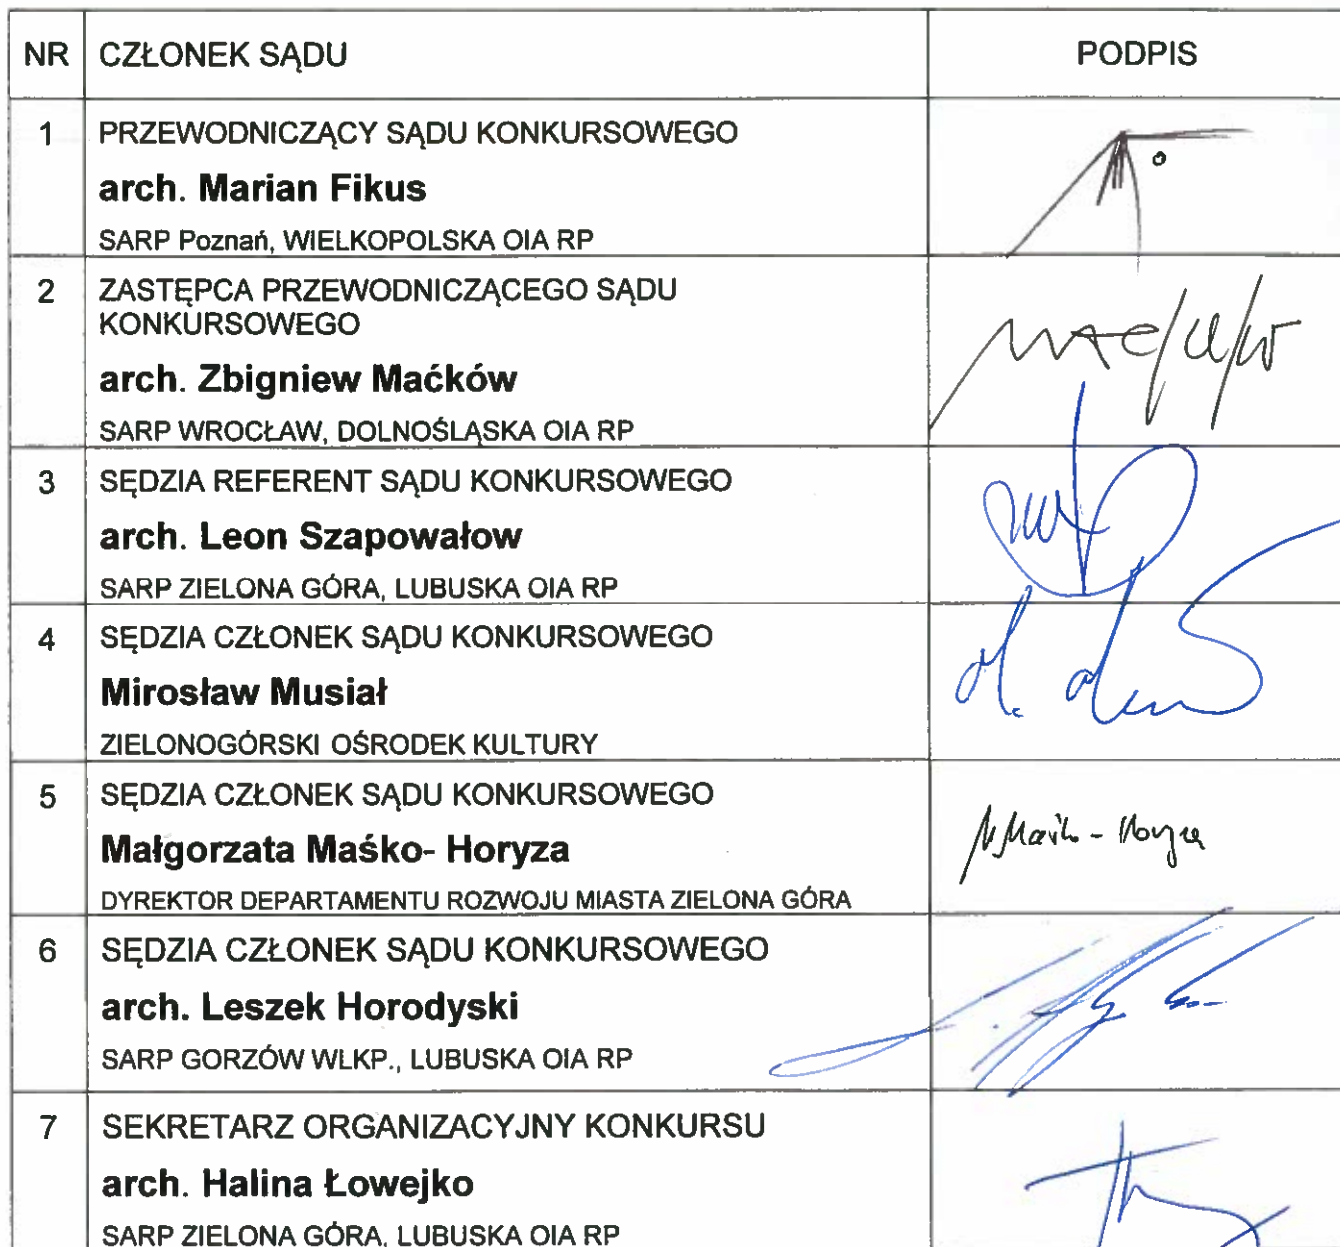 NR CZŁONEK SĄDU PODPIS
1 PRZEWODNICZĄCY SĄDU KONKURSOWEGO
arch. Marian Fikus
SARP Poznań, WIELKOPOLSKA OIA RP
2 ZASTĘPCA PRZEWODNICZĄCEGO SĄDU
KONKURSOWEGO
arch. Zbigniew Maćków
SARP WROCŁAW, DOLNOŚLĄSKA OIA RP
3 SĘDZIA REFERENT SĄDU KONKURSOWEGO
arch. Leon Szapowałow
SARP ZIELONA GÓRA, LUBUSKA OIA RP
4 SĘDZIA CZŁONEK SĄDU KONKURSOWEGO
Mirosław Musiał
ZIELONOGÓRSKI OŚRODEK KULTURY
5 SĘDZIA CZŁONEK SĄDU KONKURSOWEGO
Małgorzata Maśko- Horyza
DYREKTOR DEPARTAMENTU ROZWOJU MIASTA ZIELONA GÓRA
6 SĘDZIA CZŁONEK SĄDU KONKURSOWEGO
arch. Leszek Horodyski
SARP GORZÓW WLKP., LUBUSKA OIA RP
7 SEKRETARZ ORGANIZACYJNY KONKURSU
arch. Halina Łowejko
SARP ZIELONA GÓRA, LUBUSKA OIA RP